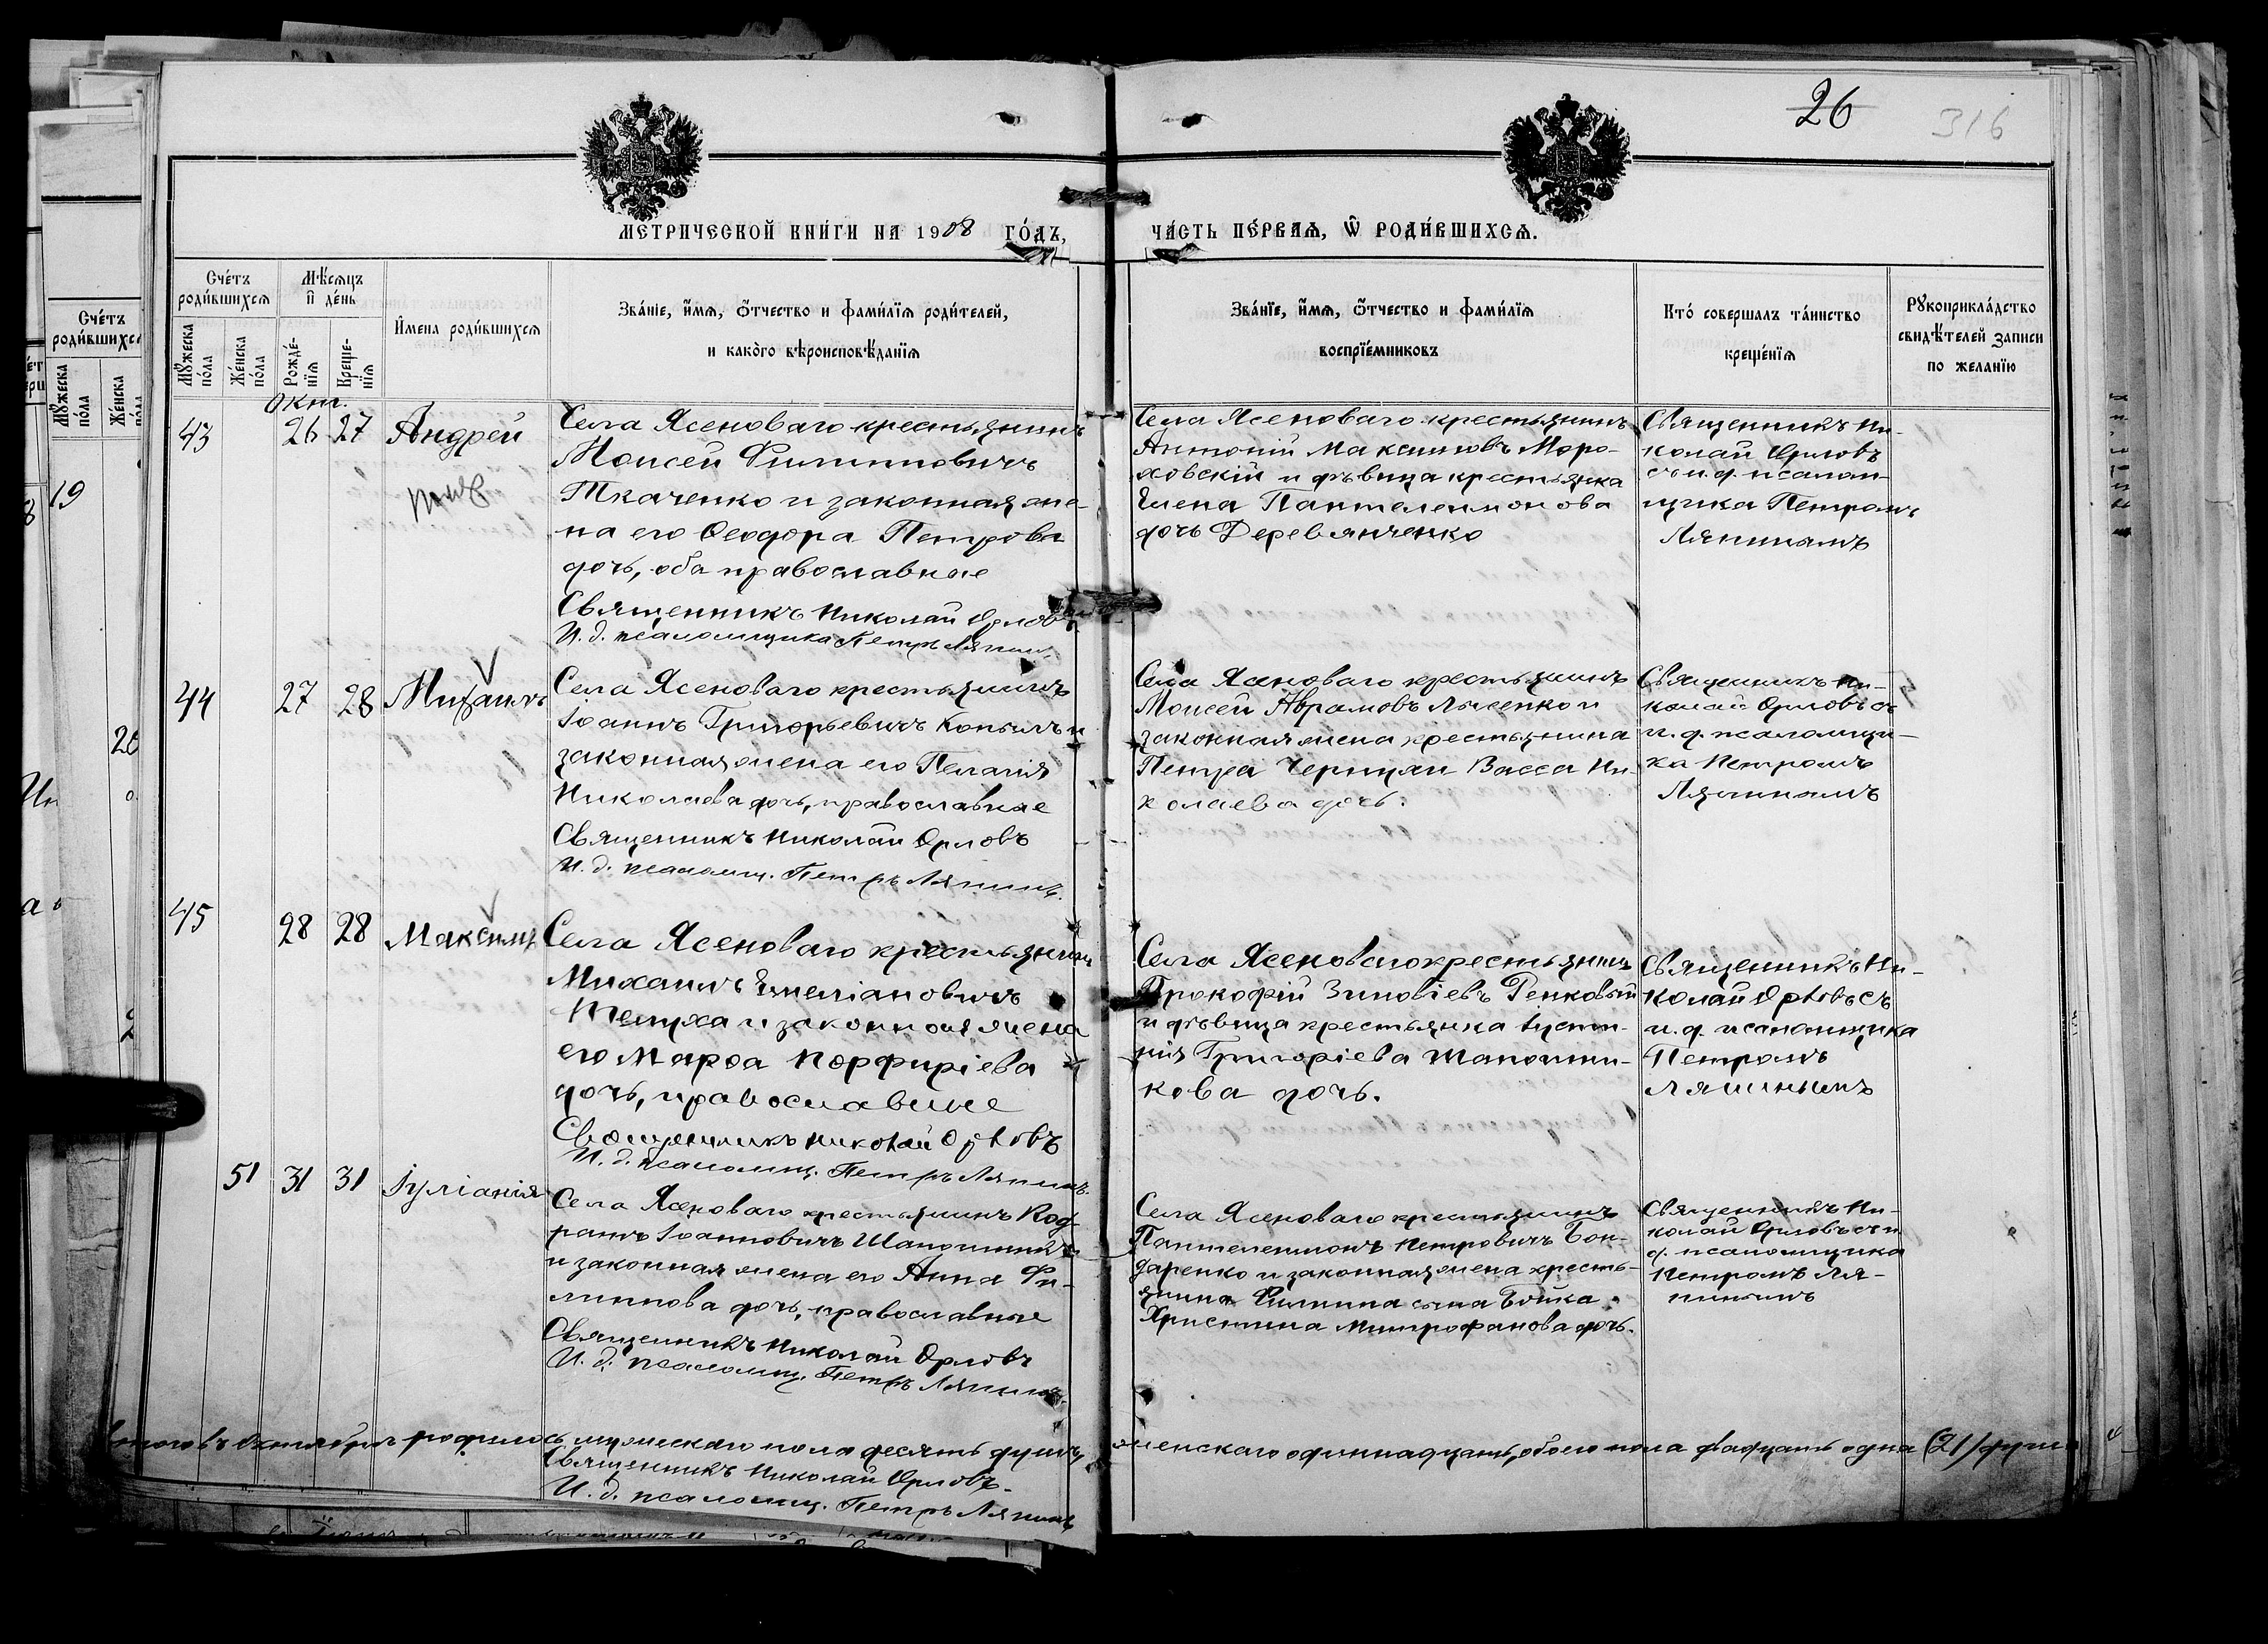 26
316
МЕТРИЧЕСКОЙ КНИ́ГИ НА 1908 ГО́ДЪ,
ЧА́СТЬ ПЕ́РВАѦ, Ѿ РОДИ́ВШИХСѦ.
Сче́тъ родѝвшихсѧ
Мѣ́сѧцъ и де́нь
Мꙋ́жеска по́ла
Же́нска по́ла
Рожде́нїѧ
Креще́нїѧ
И́мена роди́вшихсѧ
Зва́нїе, и́мѧ, ѻ́тчество и фами́лїѧ роди́телей,
и како́го вѣроисповѣ́данїѧ
Зва́нїе, и́мѧ, ѻ́тчество и фами́лїѧ
воспрїе́мниковъ
Кто́ совершалъ та́инство
креще́нїѧ
Рꙋкоприкла́дство
свидѣ́телей записи
по желанїю
Окт.
43 26 27 Андрей
Села Ясеноваго крестьянинъ
Моисей Филипповичъ
Ткаченко и законная же-
на его Ѳеодора Петрова
дочь, оба православные
Священникъ Николай Орловъ
И. д. псаломщика Петръ Ляпин.
Села Ясеноваго крестьянинъ
Антоній Максимовъ Моро-
ховскій и дѣвица крестьянка
Елена Пантелеимонова
дочь Деревянченко
Священникъ Ни-
колай Орловъ
съ и. д. псалом-
щика Петромъ
Ляпинымъ
44 27 28 Михаилъ
Села Ясеноваго крестьянинъ
Іоаннъ Григорьевичъ Копылъ и
законная жена его Пелагія
Николаева дочь, православные
Священникъ Николай Орловъ
И. д. псаломщ. Петръ Ляпинъ.
Села Ясеноваго крестьянинъ
Моисей Аврамовъ Лысенко и
законная жена крестьянина
Петра Черпуян Васса Ни-
колаева дочь.
Священникъ Ни-
колай Орловъ съ
и. д. псаломщи-
ка Петромъ
Ляпинымъ
45 28 28 Максимъ
Села Ясеноваго крестьянинъ
Михаилъ Емеліановичъ
Телуха и законная жена
его Марѳа Порфиріева
дочь, православные
Священникъ Николай Орловъ
И. д. псаломщ. Петръ Ляпинъ.
Села Ясеноваго крестьянинъ
Прокофій Зиновіевъ Генковый
и дѣвица крестьянка Іусти-
нія Григоріева Шапошни-
кова дочь.
Священникъ Ни-
колай Орловъ съ
и. д. псаломщика
Петромъ
Ляпинымъ
51 31 31 Іуліанія
Села Ясеноваго крестьянинъ Код-
ратъ Іоанновичъ Шапошникъ
и законная жена его Анна Фи-
липпова дочь, православные
Священникъ Николай Орловъ
И. д. псаломщ. Петръ Ляпинъ.
Села Ясеноваго крестьянинъ
Пантелеимонъ Петровичъ Бон-
даренко и законная жена кресть-
янина Филиппа сына Бойка
Христина Митрофанова дочь.
Священникъ Ни-
колай Орловъ съ и.
д. псаломщика
Петромъ Ля-
пинымъ
Итого въ Октябрѣ родилось мужескаго пола десять душъ, женскаго одиннадцать, обоего пола двадцать одна (21) душа
Священникъ Николай Орловъ.
И. д. псаломщ. Петръ Ляпинъ
Сче́тъ
роди́вшихсѧ
Мꙋ́жеска по́ла
Же́нска
19
20